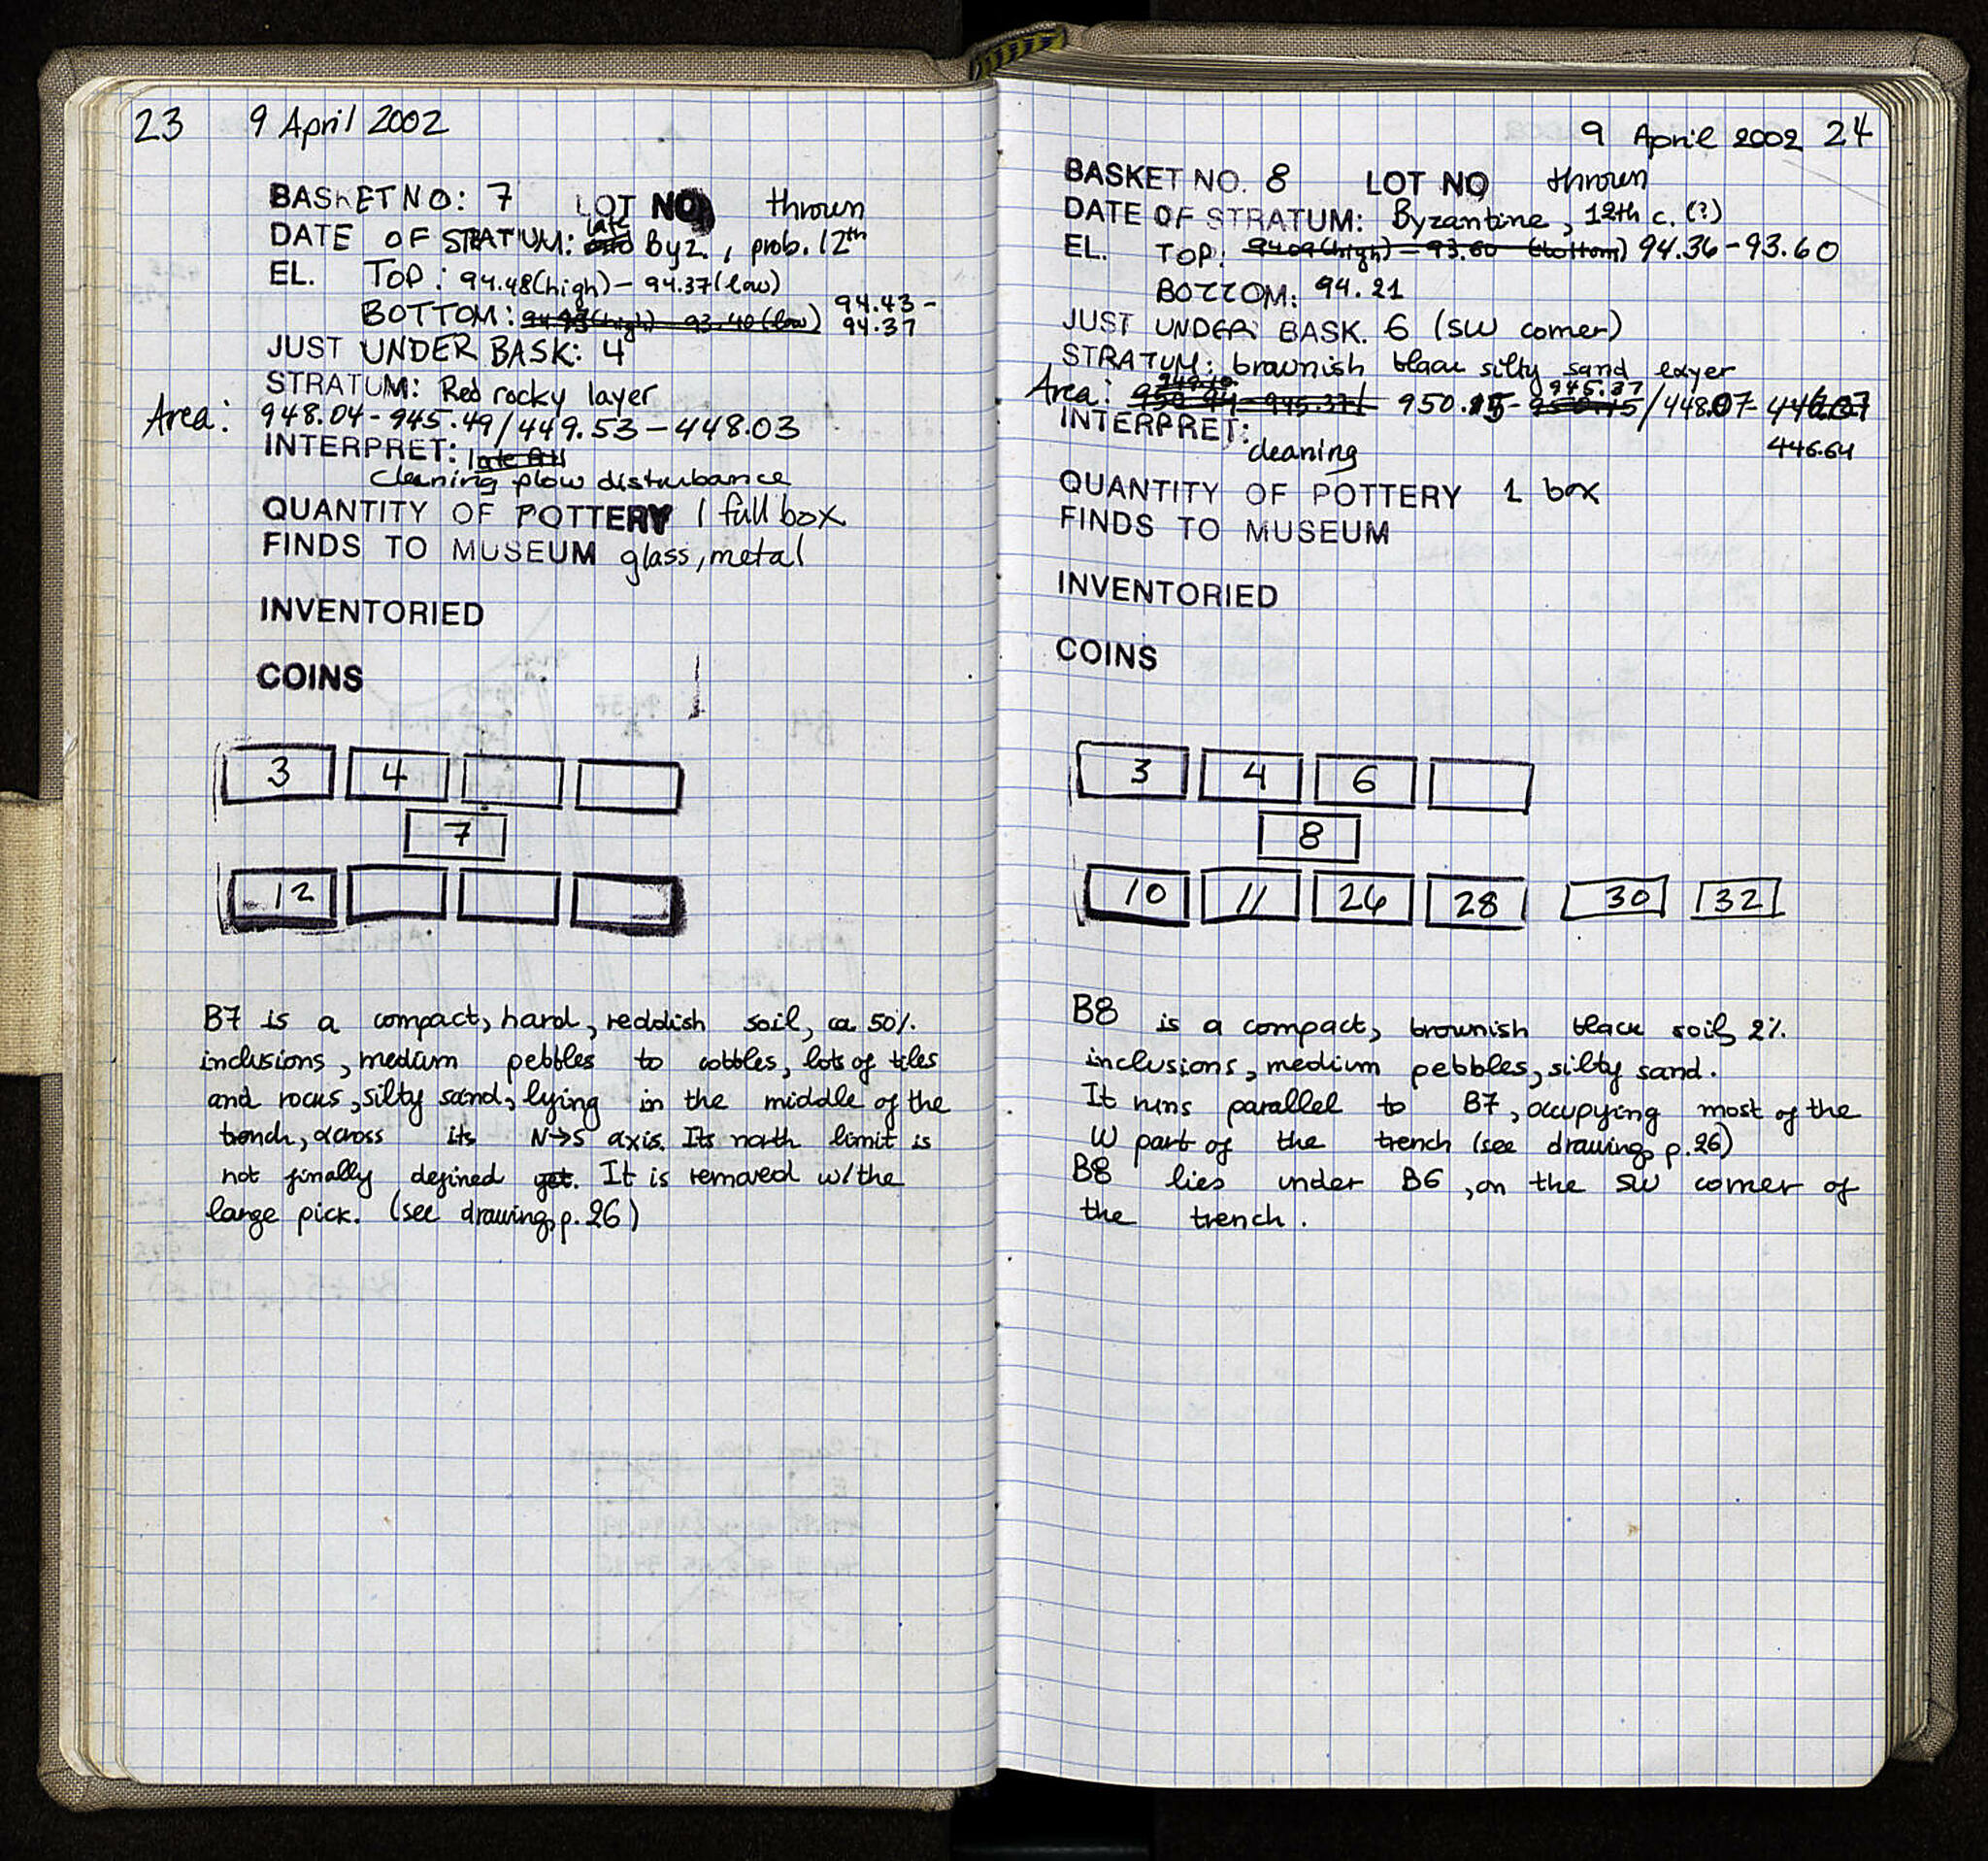 23 9 April 2002
BASKET NO: 7 LOT NO thrown
DATE OF STRATUM: late Byz., prob. 12th
EL. TOP: 94.48(high) – 94.37(low)
BOTTOM: 94.43 – 94.37
JUST UNDER BASK: 4
STRATUM: Red rocky layer
Area: 948.04 - 945.49/449.53 – 448.03
INTERPRET: late fill
cleaning plow disturbance
QUANTITY OF POTTERY 1 full box
FINDS TO MUSEUM glass, metal
INVENTORIED
COINS
3 4
7
12
B7 is a compact, hard, reddish soil, ca 50%
inclusions, medium pebbles to cobbles, lots of tiles
and rocks, silty sand, lying in the middle of the
trench, across its N→S axis. Its north limit is
not finally defined yet. It is removed w/the
large pick. (see drawing, p. 26)
9 April 2002 24
BASKET NO. 8 LOT NO thrown
DATE OF STRATUM: Byzantine, 12th c. (?)
EL. TOP: 94.09(high) – 93.60 (bottom) 94.36 – 93.60
BOTTOM: 94.21
JUST UNDER BASK. 6 (SW corner)
STRATUM: brownish black silty sand layer
Area: 950.15 - 945.37 /448.07 - 446.64
INTERPRET: cleaning
QUANTITY OF POTTERY 1 box
FINDS TO MUSEUM
INVENTORIED
COINS
3 4 6
8
10 11 26 28 30 32
B8 is a compact, brownish black soil, 2%
inclusions, medium pebbles, silty sand.
It runs parallel to B7, occupying most of the
W part of the trench (see drawing, p. 26)
B8 lies under B6, on the SW corner of
the trench.